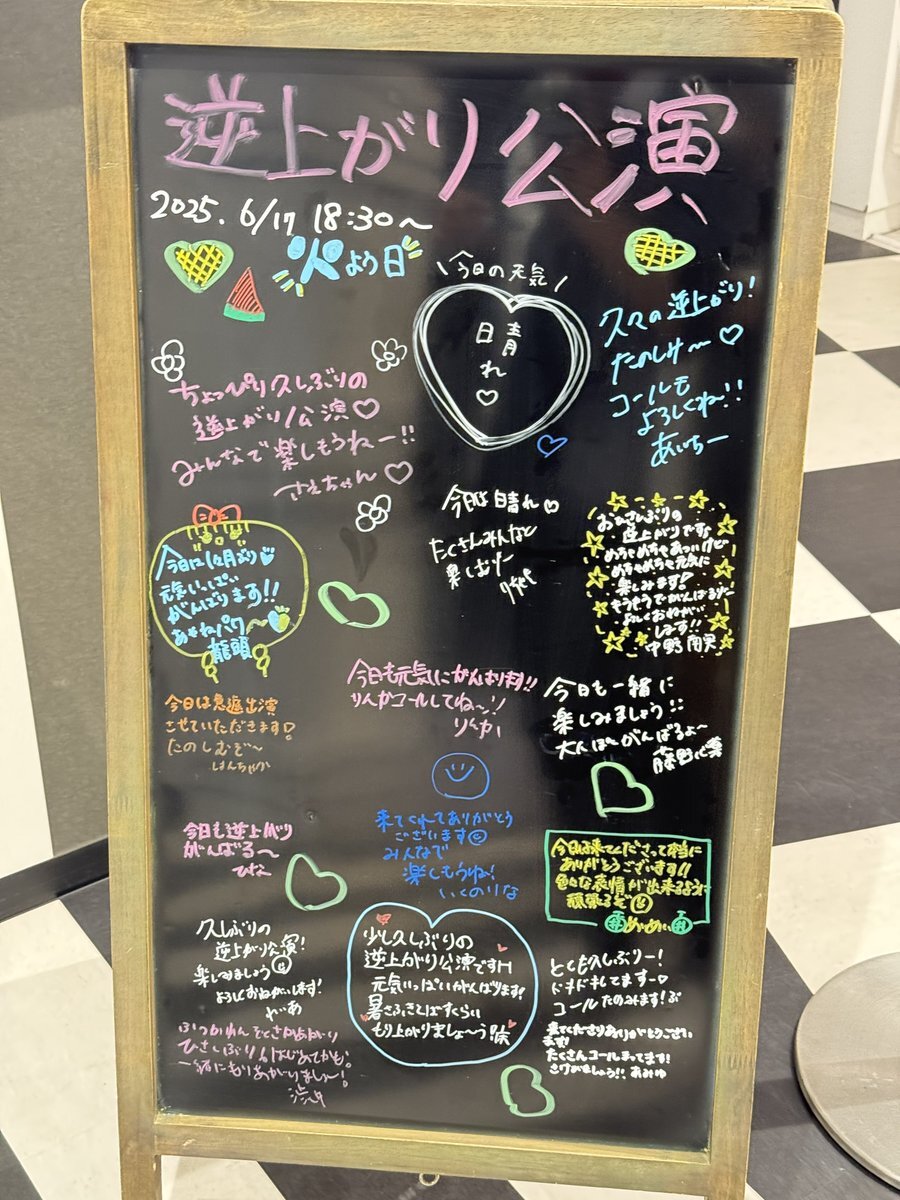 逆上がり公演
2025. 6/17 18:30〜
火よう日
\今日の天気/
晴れ♡
久々の逆上がり!
たのしみ〜♡
コールも
よろしくね!!
あいちー
ちょっぴり久しぶりの
逆上がり公演♡
みんなで楽しもうねー!!
さえちゃん♡
今日は晴れ♡
たくさんみんなと
楽しむぞ
おひさしぶりの
逆上がりです
めちゃめちゃあついけど
めちゃめちゃ元気に
楽しみます
よろしくおねがい
します!!
今日は
元気いっぱい
がんばります!!
龍頭
今日も元気にがんばります!!
りんかコールしてね〜!
りんか
今日も一緒に
楽しみましょう!!
がんばるよ〜
藤野心葉
今日は急遽出演
させていただきます!
たのしむぞ〜
今日も逆上がり
がんばる〜
ひな
来てくれてありがとう
ございます
みんなで
楽しもうね!
いくのりな
今日は来てくださって本当に
ありがとうございます!!
色々な表情が出来るように
頑張るぞ
めいめい
久しぶりの
逆上がり公演!
楽しみましょう
よろしくおねがいします!
少し久しぶりの
逆上がり公演です
元気いっぱいがんばります!
暑さふきとばすぐらい
もり上がりましょ〜う!
とても久しぶりー!
ドキドキしてます〜♡
コールたのみます!
来てくださりありがとうござい
ます!
たくさんコールまってます!
さけびましょう!! あみゆ
ひさしぶり
一緒にもりあがりましょ〜!